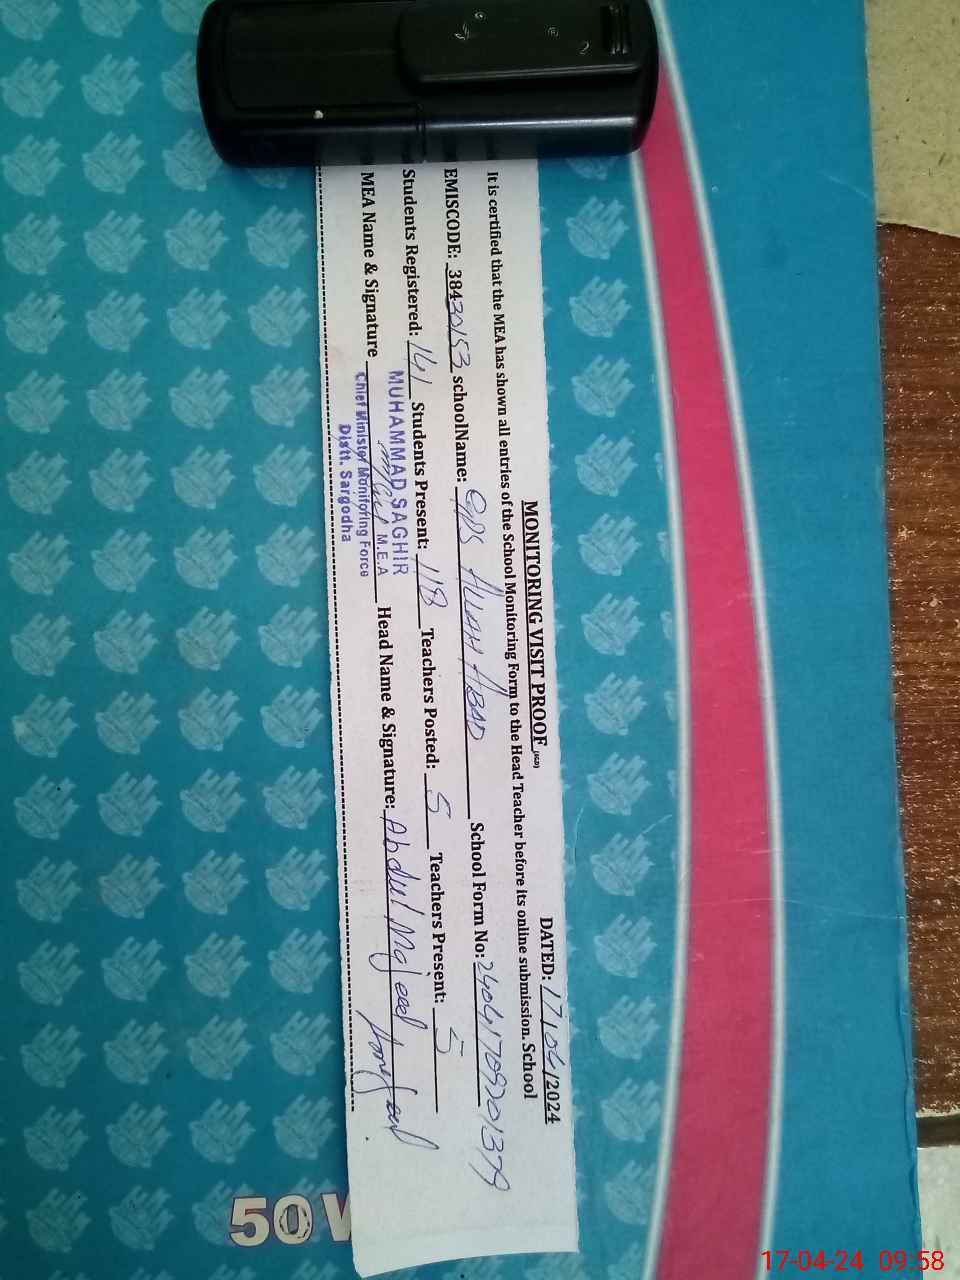 MONITORING VISIT PROOF
DATED: 17/04/2024
It is certified that the MEA has shown all entries of the School Monitoring Form to the Head Teacher before its online submission. School
EMISCODE: 38430153 schoolName: GPS ALLAH ABAD School Form No:
Students Registered: 141 Students Present: 118 Teachers Posted: 5 Teachers Present: 5
MEA Name & Signature Head Name & Signature: Abdul Majeed
MUHAMMAD SAGHIR
M.E.A
Chief Minister Monitoring Force
Distt. Sargodha
50
17-04-24 09:58